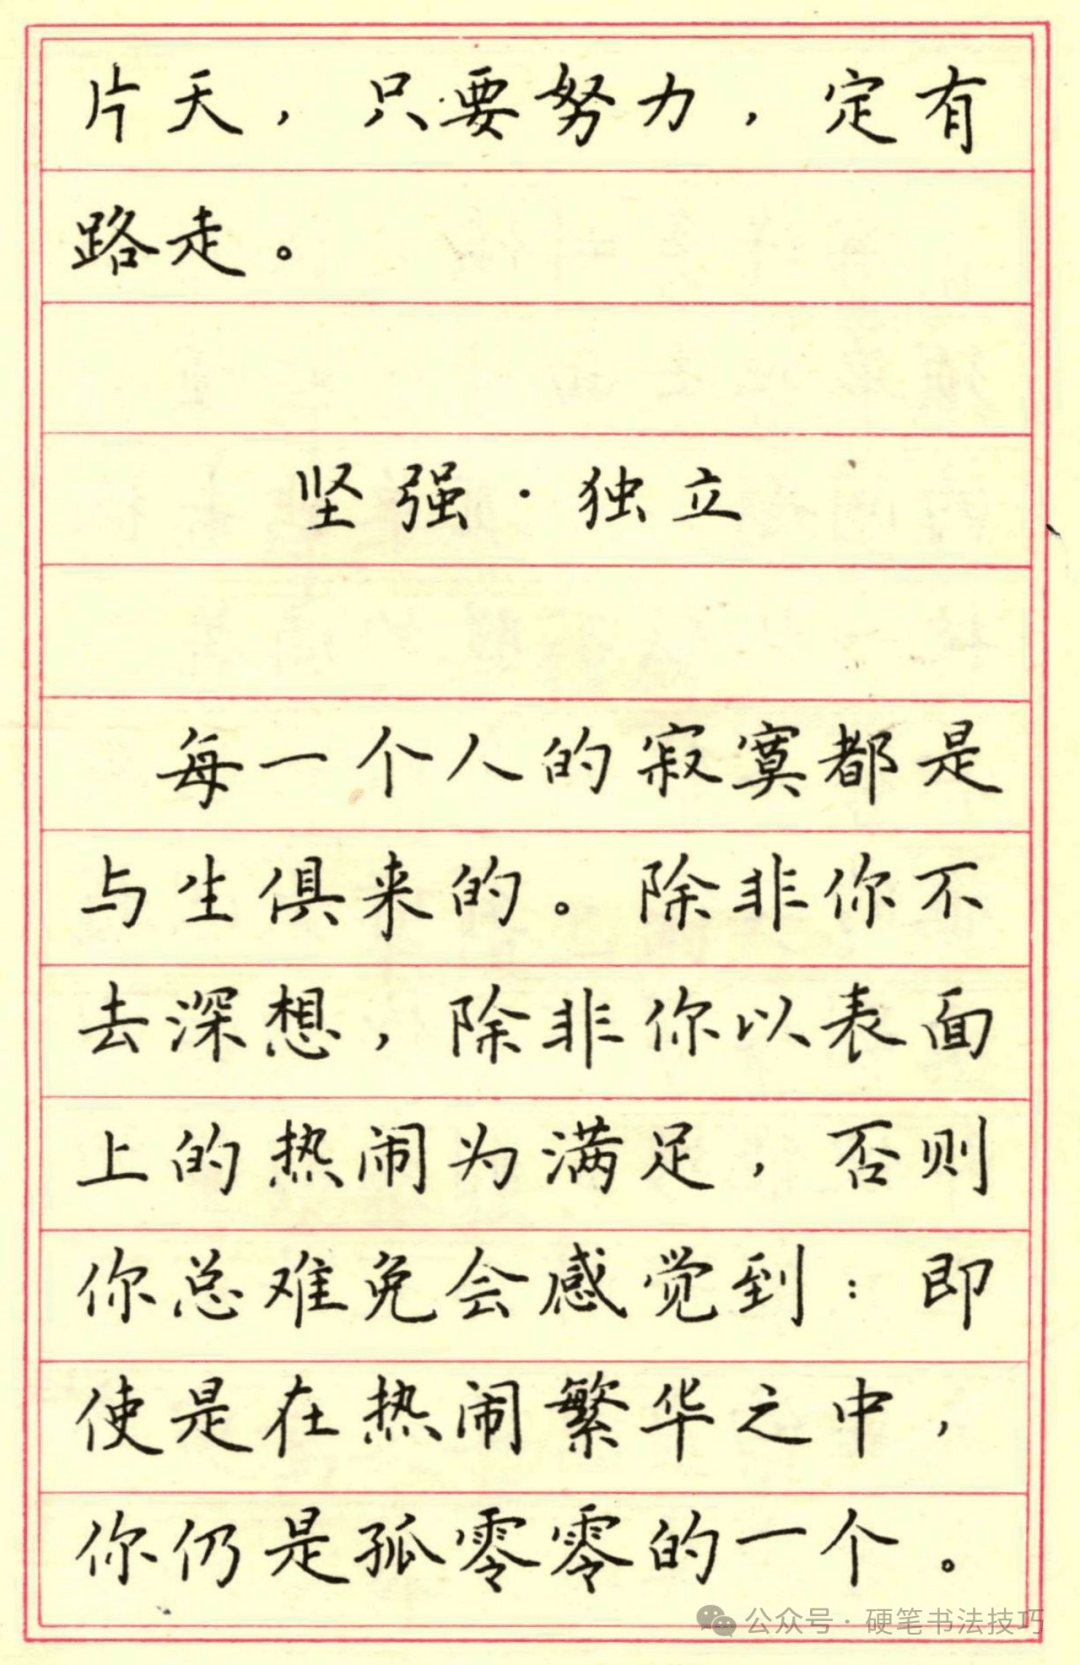 片天，只要努力，定有
路走。
坚强·独立
每一个人的寂寞都是
与生俱来的。除非你不
去深想，除非你以表面
上的热闹为满足，否则
你总难免会感觉到：即
使是在热闹繁华之中，
你仍是孤零零的一个。
公众号·硬笔书法技巧